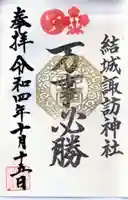 結城諏訪神社
百事必勝
奉拝 令和四年十月十五日